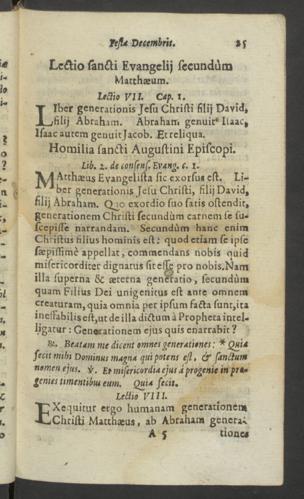 Festa Decembris. 25
Lectio sancti Evangelij secundùm
Matthæum.
Lectio VII. Cap. 1.
LIber generationis Jesu Christi filij David,
filij Abraham. Abraham genuit Isaac,
Isaac autem genuit Jacob. Et reliqua.
Homilia sancti Augustini Episcopi.
Lib. 2. de consens. Evang. c. 1.
MAtthæus Evangelista sic exorsus est. Li-
ber generationis Jesu Christi, filij David,
filij Abraham. Quo exordio suo satis ostendit,
generationem Christi secundùm carnem se su-
scepisse narrandam. Secundùm hanc enim
Christus filius hominis est: quod etiam se ipse
sæpissimè appellat, commendans nobis quid
misericorditer dignatus sit esse pro nobis. Nam
illa superna & æterna generatio, secundùm
quam Filius Dei unigenitus est ante omnem
creaturam, quia omnia per ipsum facta sunt, ita
ineffabilis est, ut de illa dictum à Propheta intel-
ligatur: Generationem ejus quis enarrabit?
℟. Beatam me dicent omnes generationes: * Quia
fecit mihi Dominus magna qui potens est, & sanctum
nomen ejus. ℣. Et misericordia ejus à progenie in pro-
genies timentibus eum. Quia fecit.
Lectio VIII.
EXequitur ergo humanam generationem
Christi Matthæus, ab Abraham genera-
A 5 tiones